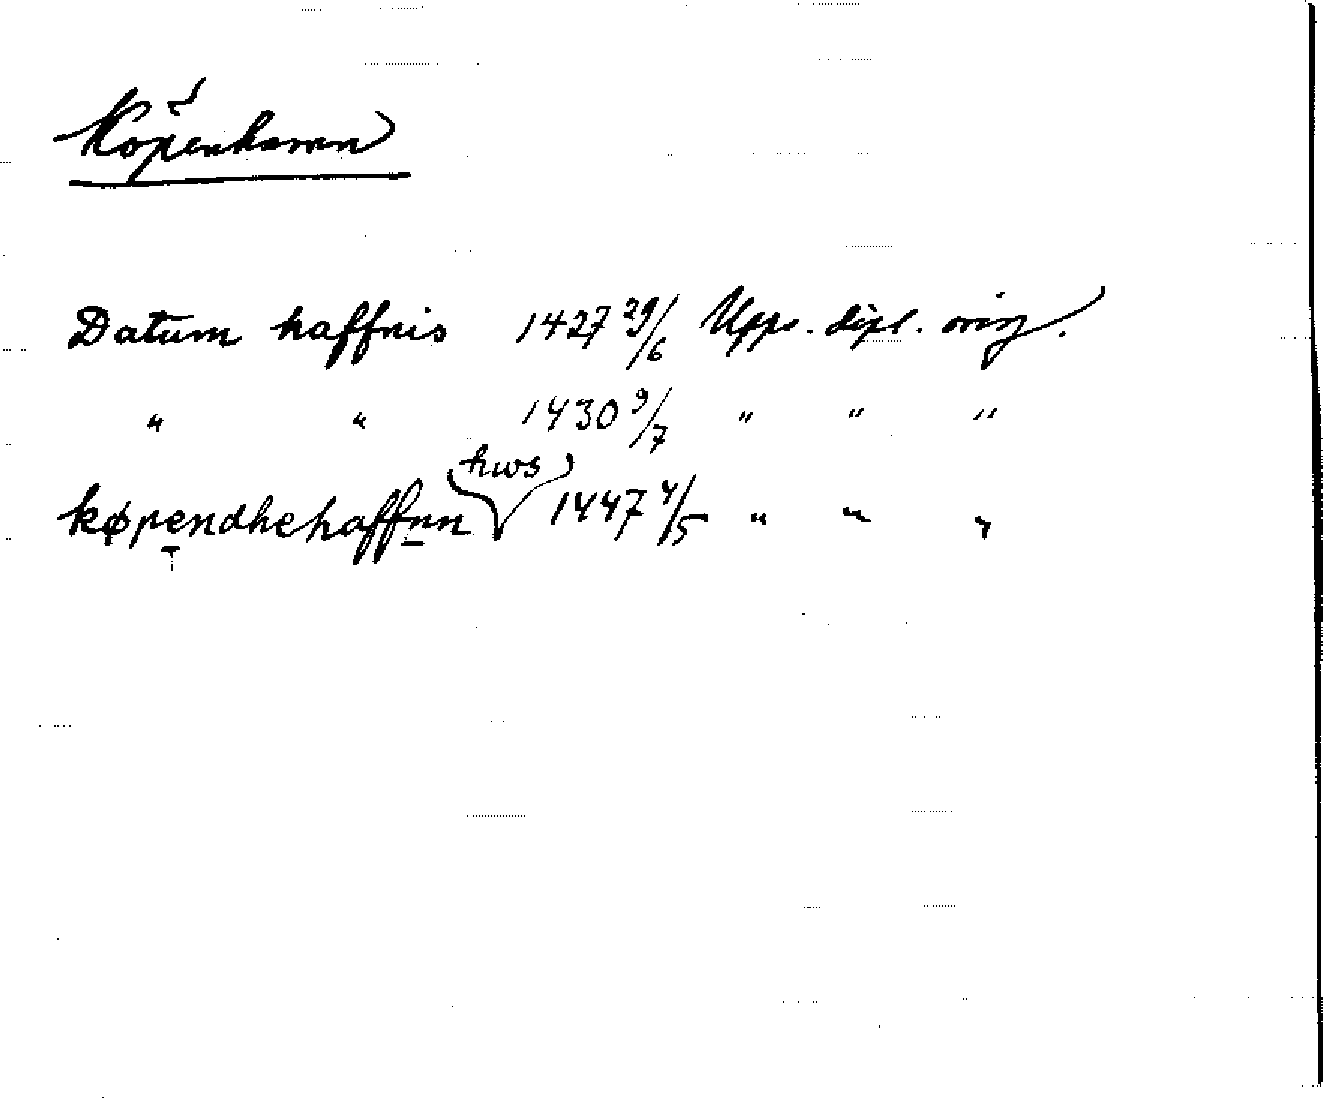 Köpenhamn
Datum haffnis 1427 29/6 Upps. dipl. orig.
" " 1430 9/7 " " "
(hws)
køpendhehaffnn 1447 4/5 " " "